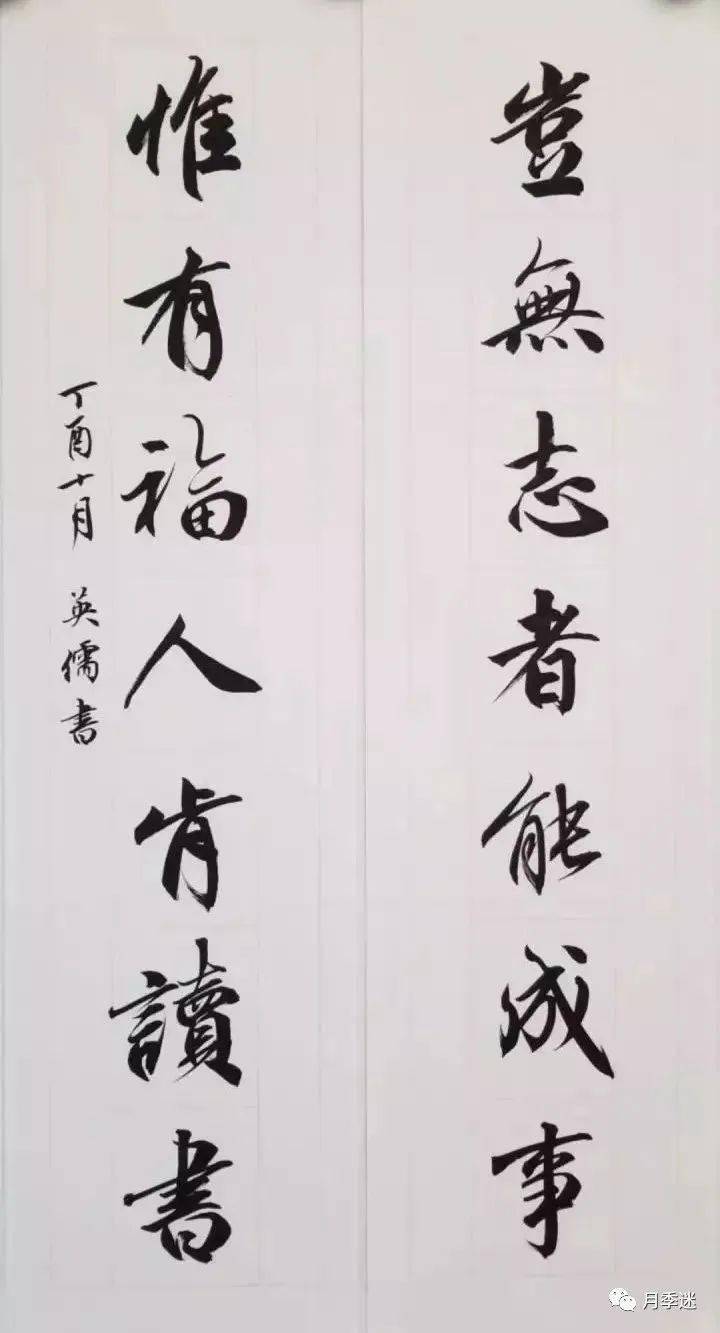 豈無志者能成事
惟有福人肯讀書
丁酉十月 英儒書
月季迷